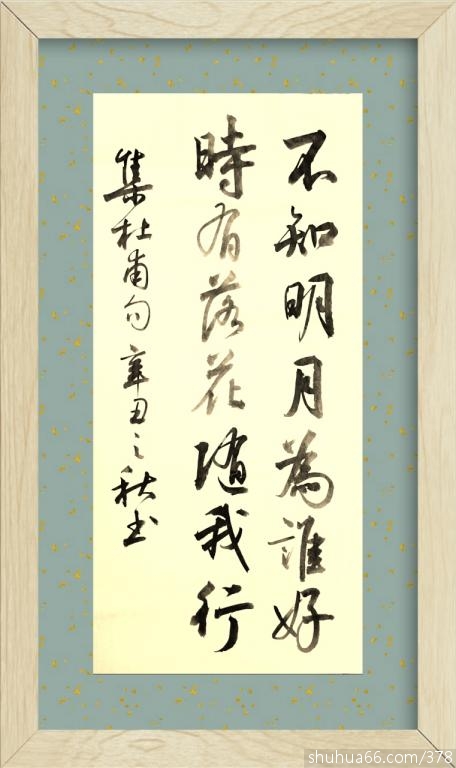 不知明月為誰好
時有落花隨我行
集杜甫句 辛丑之秋書
shuhua66.com/378